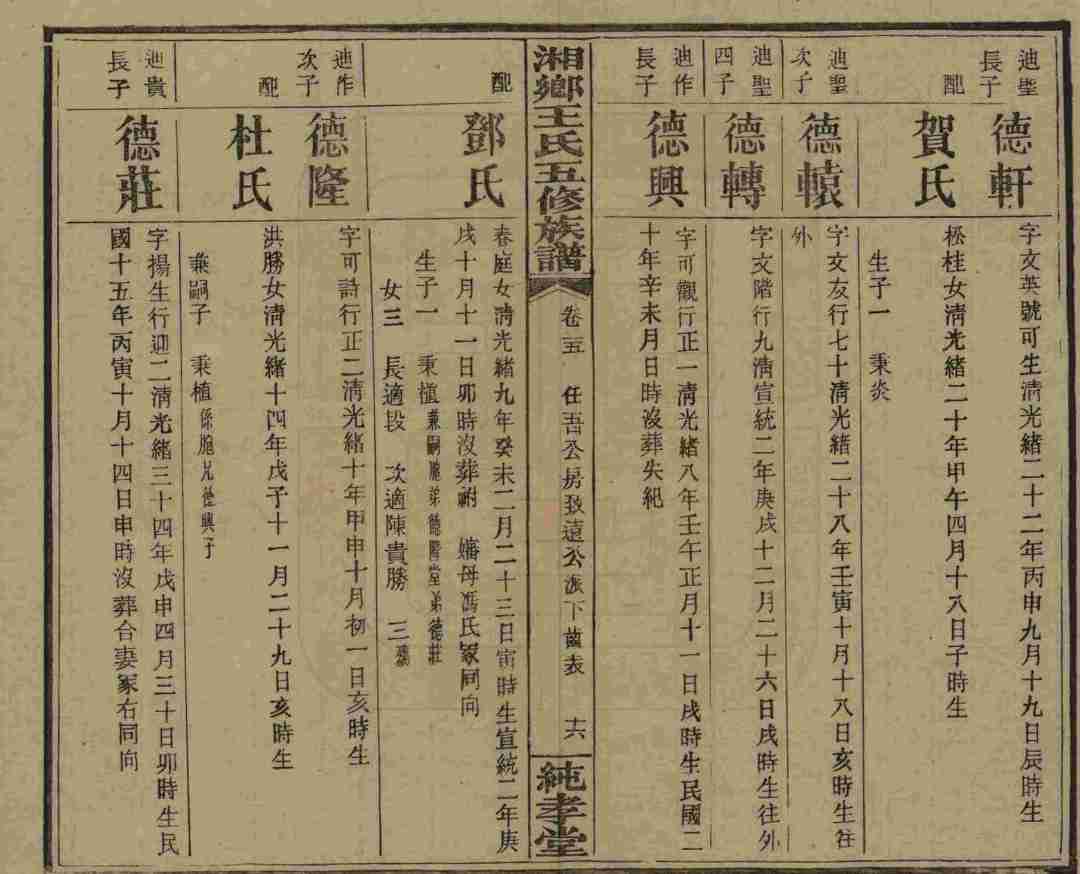 迪聖長子
德軒
字文英號可生清光緒二十二年丙申九月十九日辰時生
配
賀氏
松桂女清光緒二十年甲午四月十八日子時生
生子一　秉炎
迪聖次子
德轅
字文友行七十清光緒二十八年壬寅十月十八日亥時生往
外
迪聖四子
德轉
字文階行九清宣統二年庚戌十二月二十六日戌時生往外
迪作長子
德興
字可觀行正一清光緒八年壬午正月十一日戌時生民國二
十年辛未月日時沒葬失紀
湘鄉王氏五修族譜
卷五　任吾公房致遠公派下齒表　十六
純孝堂
配
鄧氏
春庭女清光緒九年癸未二月二十三日寅時生宣統二年庚
戌十月十一日卯時沒葬祔　嬸母馮氏冢同向
生子一　秉植兼嗣胞弟德隆堂弟德莊
女三　長適段　次適陳貴勝　三殤
迪作次子
德隆
字可詩行正二清光緒十年甲申十月初一日亥時生
配
杜氏
洪勝女清光緒十四年戊子十一月二十九日亥時生
兼嗣子　秉植係胞兄德興子
迪貴長子
德莊
字揚生行迎二清光緒三十四年戊申四月三十日卯時生民
國十五年丙寅十月十四日申時沒葬合妻冢右同向